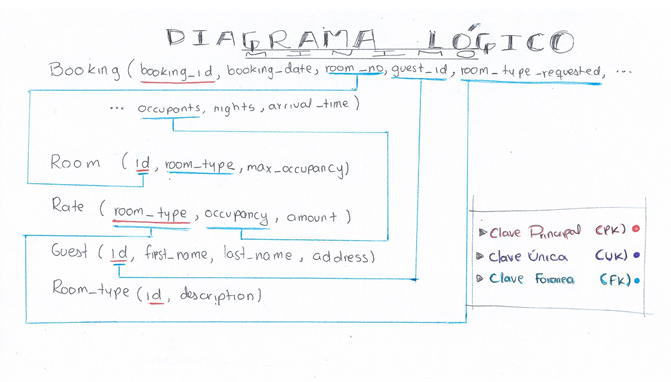 DIAGRAMA LÓGICO
Booking ( booking_id, booking_date, room_no, guest_id, room_type_requested, ...
... occupants, nights, arrival_time )
Room ( id, room_type, max_occupancy)
Rate ( room_type, occupancy, amount )
Guest ( id, first_name, last_name, address)
Room_type ( id, description)
Clave Principal (PK)
Clave Única (UK)
Clave Foranea (FK)